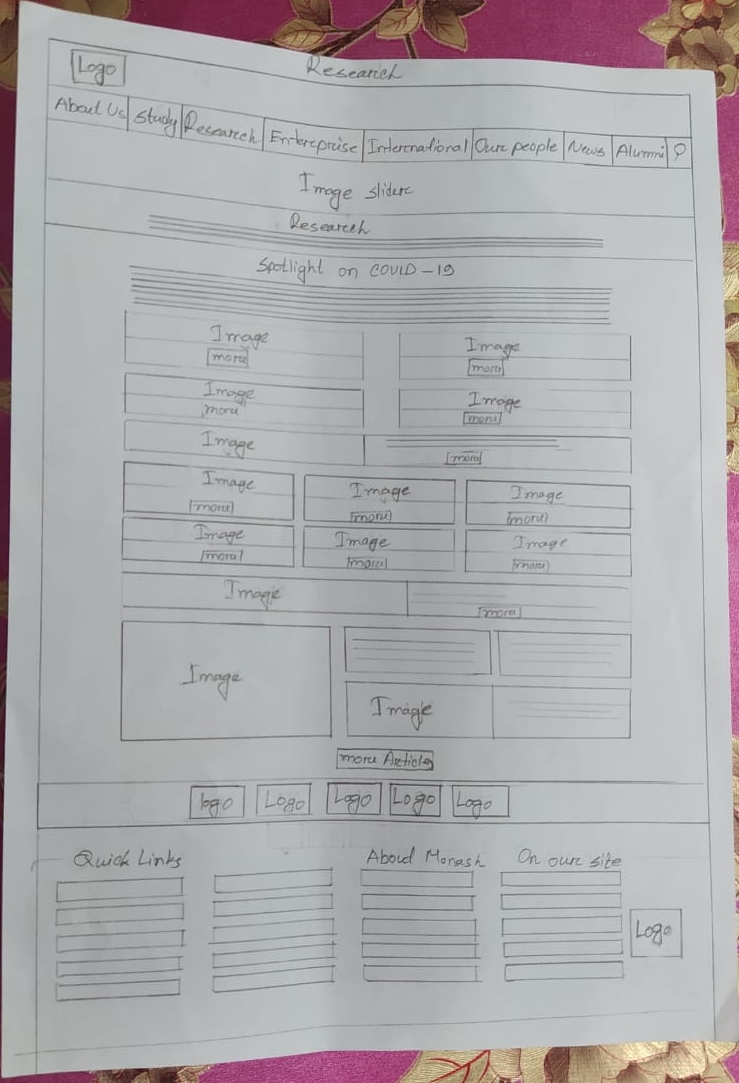 Logo Research
About Us Study Research Enterprise International Our people News Alumni
Image slider
Research
Spotlight on COVID-19
Image Image
more more
Image Image
more more
Image
more
Image Image Image
more more more
Image Image Image
more more more
Image
more
Image
Image
more Articles
logo Logo Logo Logo Logo
Quick Links About Monash On our site
Logo